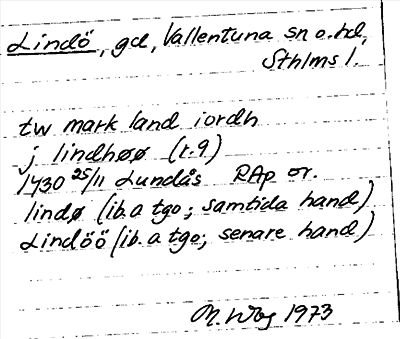 Lindö, gd, Vallentuna sn o. hd,
Sthlms l.
tw mark land iordh
j lindhøø (r.9)
1430 25/11 Lundås RAp or.
lindø (ib. a tgo; samtida hand)
Lindöö (ib. a tgo; senare hand)
M. Wbg 1973